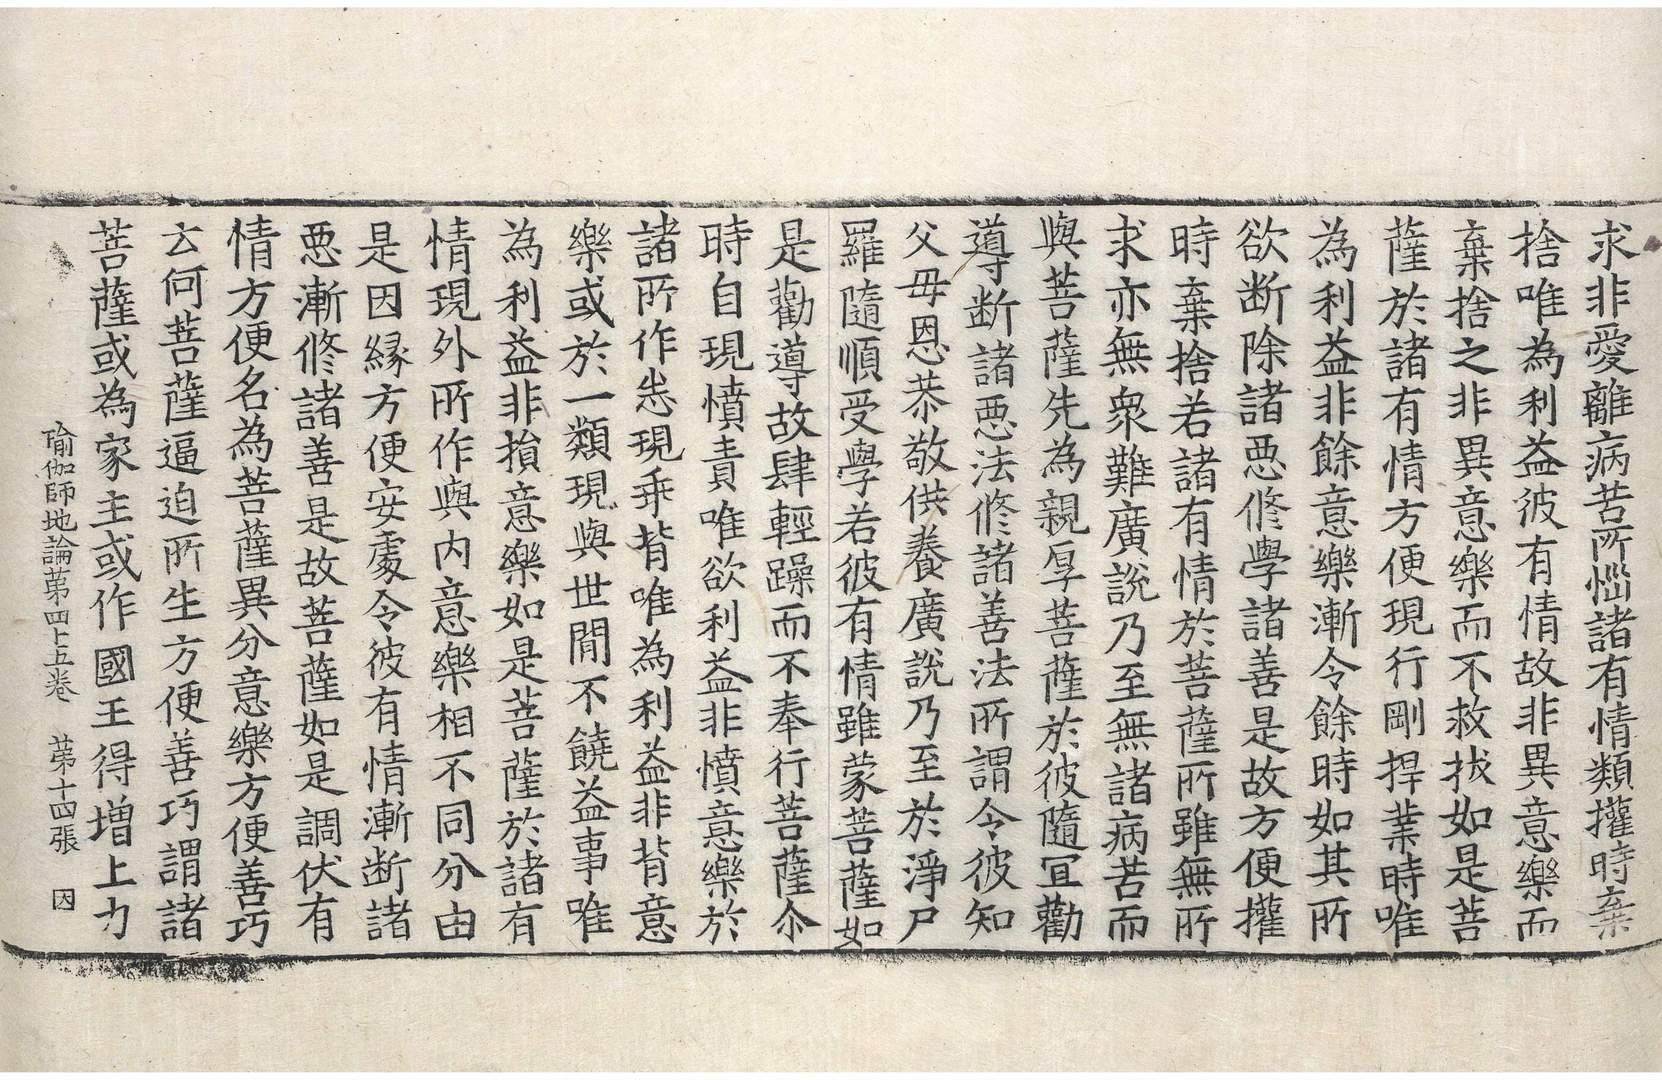 求非愛離病苦所惱諸有情類攉時棄
捨唯為利益彼有情故非異意樂而
棄捨之非異意樂而不救拔如是菩
薩於諸有情方便現行剛捍業時唯
為利益非餘意樂漸令餘時如其所
欲断除諸惡修學諸善是故方便攉
時棄捨若諸有情於菩薩所雖無所
求亦無衆難廣說乃至無諸病苦而
與菩薩先為親厚菩薩於彼隨宜勸
導断諸惡法修諸善法所謂令彼知
父母恩恭敬供養廣說乃至於淨尸
羅隨順受學若彼有情雖蒙菩薩如
是勸導故肆輕躁而不奉行菩薩尒
時自現憤責唯欲利益非憤意樂於
諸所作恙現乖背唯為利益非背意
樂或於一類現與世間不饒益事唯
為利益非損意樂如是菩薩於諸有
情現外所作與内意樂相不同分由
是因緣方便安處令彼有情漸断諸
惡漸修諸善是故菩薩如是調伏有
情方便名為菩薩異分意樂方便善巧
云何菩薩逼迫所生方便善巧謂諸
菩薩或為家主或作國王得增上力
瑜伽師地論第四十五卷　第十四張　因